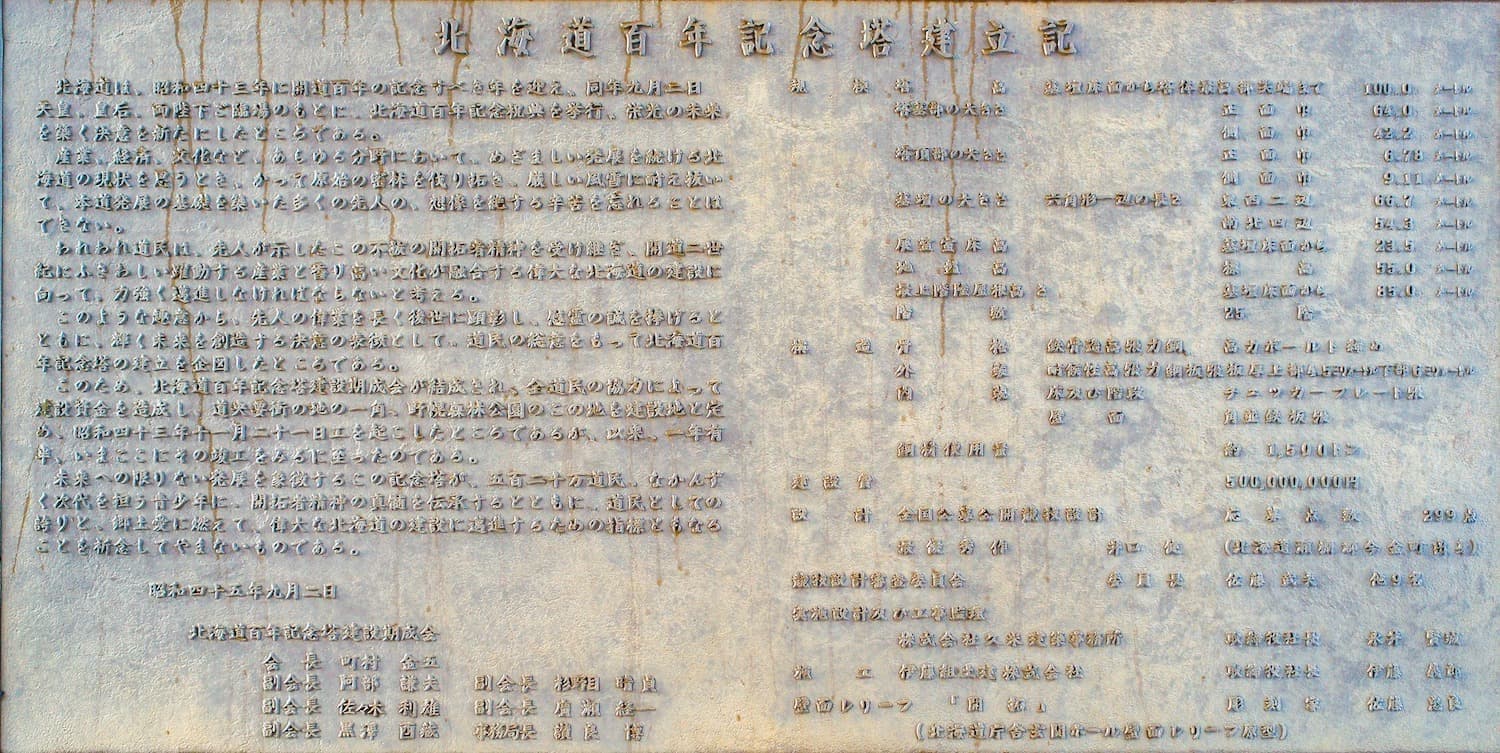 北海道百年記念塔建立記
北海道は、昭和四十三年に開道百年の記念すべき年を迎え、同年九月二日
天皇、皇后、両陛下ご臨場のもとに、北海道百年記念祝典を挙行、栄光の未来
を築く決意を新たにしたところである。
産業、経済、文化など、あらゆる分野において、めざましい発展を続ける北
海道の現状を思うとき、かつて原始の密林を伐り拓き、厳しい風雪に耐え抜い
て、本道発展の基礎を築いた多くの先人の、想像を絶する辛苦を忘れることは
できない。
われわれ道民は、先人が示したこの不抜の開拓者精神を受け継ぎ、開道二世
紀にふさわしい躍動する産業と香り高い文化が融合する偉大な北海道の建設に
向って、力強く邁進しなければならないと考える。
このような趣意から、先人の偉業を長く後世に顕彰し、慰霊の誠を捧げると
ともに、輝く未来を創造する決意の象徴として、道民の総意をもって北海道百
年記念塔の建立を企図したところである。
このため、北海道百年記念塔建設期成会が結成され、全道民の協力によって
建設資金を造成し、道央要衝の地の一角、野幌森林公園のこの地を建設地と定
め、昭和四十三年十一月二十一日工を起こしたところであるが、以来、一年有
半、いまここにその竣工をみるに至ったのである。
未来への限りない発展を象徴するこの記念塔が、五百二十万道民、なかんずく
次代を担う青少年に、開拓者精神の真髄を伝承するとともに、道民としての
誇りと、郷土愛に燃えて、偉大な北海道の建設に邁進するための指標ともなる
ことを祈念してやまないものである。
昭和四十五年九月二日
北海道百年記念塔建設期成会
会長 町村 金五
副会長 阿部 謙夫 副会長 杉野目 晴貞
副会長 佐々木 利雄 副会長 廣瀬 経一
副会長 黒澤 酉蔵 事務局長 諏良 博
規模 塔高 基壇床面から塔体最高部尖端まで 100.0 メートル
塔基部の大きさ 正面巾 64.0 メートル
側面巾 42.2 メートル
塔頂部の大きさ 正面巾 6.78 メートル
側面巾 9.11 メートル
基壇の大きさ 六角形一辺の長さ 東西二辺 66.7 メートル
南北四辺 54.3 メートル
展望室床高 基壇床面から 23.5 メートル
地盤高 標高 55.0 メートル
最上階陸屋根高さ 基壇床面から 85.0 メートル
階数 25 階
構造 骨格 鉄骨造高張力鋼 高力ボールト締め
外装 耐候性高張力鋼板張板厚上部4.5ミリメートル下部6ミリメートル
内装 床及び階段 チェッカープレート張
壁面 角波鉄板張
鋼材使用量 約 1,500トン
建設費 500,000,000円
設計 全国公募公開競技設計 応募点数 299点
最優秀作 井口 健
競技設計審査委員会 委員長 佐藤 武夫 他9名
実施設計及び工事監理
株式会社久米建築事務所 取締役社長 永井 賢城
施工 伊藤組土建株式会社 取締役社長 伊藤 義郎
壁面レリーフ 「開拓」 彫刻家 佐藤 忠良
(北海道庁合議関ホール壁面レリーフ原型)